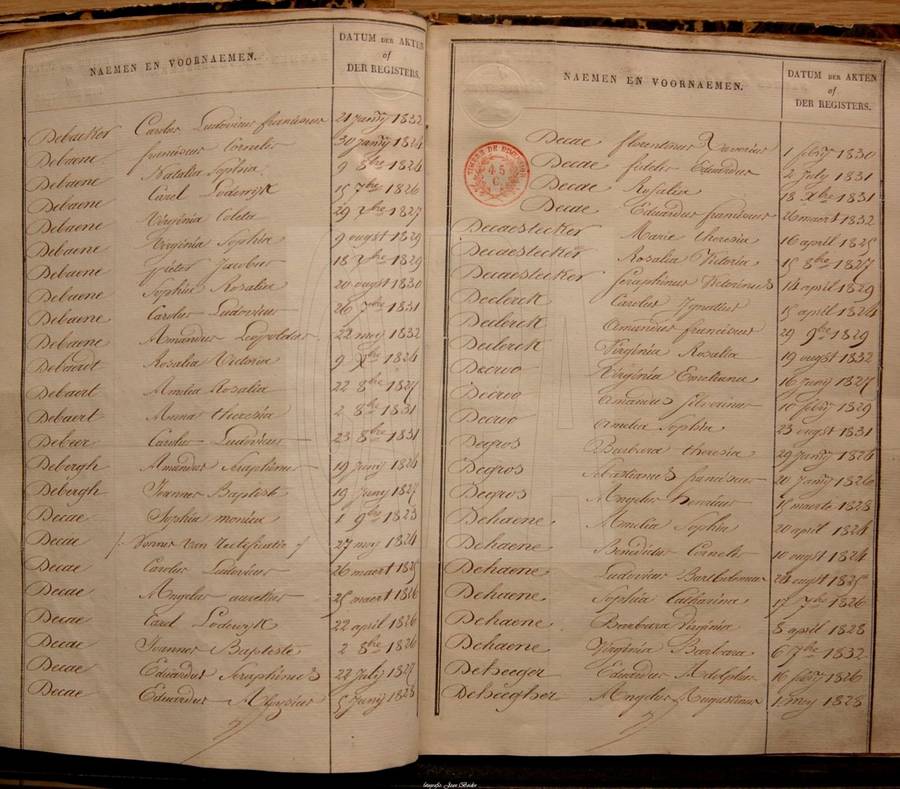 NAEMEN EN VOORNAEMEN.
DATUM DER AKTEN
of
DER REGISTERS.
Debacker Carolus Ludovicus franciscus 21 january 1832
Debaene franciscus Cornelis 30 january 1824
Debaene Natalia Sophia 9 8bre 1824
Debaene Carel Lodewyk 15 7bre 1826
Debaene Virginia Coleta 29 xbre 1827
Debaene Virginia Sophia 9 augst 1829
Debaene Pieter Jacobus 18 1829
Debaene Sophia Rosalia 20 augst 1830
Debaene Carolus Ludovicus 26 7bre 1831
Debaene Amandus Leopoldus 22 mey 1832
Debaert Rosalia Victoria 9 Xbre 1824
Debaert Amelia Rosalia 22 8bre 1827
Debaert Anna theresia 2 8bre 1831
Debeer Carolus Ludovicus 23 8bre 1831
Debergh Amandus Seraphinus 19 juny 1824
Debergh Joannes Baptiste 19 juny 1827
Decae Sophia monica 1 9bre 1823
Decae Vonnes van rectificatie 27 mey 1824
Decae Carolus Ludovicus 26 maert 1825
Decae Angelus aurelius 25 maert 1826
Decae Carel Lodewyk 22 april 1826
Decae Joannes Baptiste 2 8bre 1826
Decae Eduardus Seraphinus 22 july 1827
Decae Eduardus Aloysius 5 juny 1828
NAEMEN EN VOORNAEMEN.
DATUM DER AKTEN
of
DER REGISTERS.
TIMBRE DE DIMENSION
45
C.
Decae florentinus Xaverius 1 febry 1830
Decae fidelis Eduardus 2 july 1831
Decae Rosalia 18 Xbre 1831
Decae Eduardus franciscus 26 maert 1832
Decaestecker Marie theresia 16 april 1825
Decaestecker Rosalia Victoria 15 8bre 1827
Decaestecker Seraphinus Victorinus 14 april 1829
Declerck Carolus Ignatius 15 april 1824
Declerck Amandus franciscus 29 9bre 1829
Declerck Virginia Rosalia 19 augst 1832
Decroo Virginia Emeliana 16 juny 1827
Decroo Amandus Silverinus 10 febry 1829
Decroo Amelia Sophia 23 augst 1831
Degros Barbara theresia 29 january 1824
Degros Sebastianus franciscus 20 january 1826
Degros Angelus Honorius 15 maerte 1828
Dehaene Amelia Sophia 20 april 1824
Dehaene Benedictus Cornelis 10 augst 1824
Dehaene Ludovicus Bartholomeus 24 augst 1825
Dehaene Sophia Catharina 17 7bre 1826
Dehaene Barbara Virginia 8 april 1828
Dehaene Virginia Barbara 6 7bre 1832
Deheeger Eduardus Adolphus 16 febry 1826
Deheegher Angelus Augustinus 1 mey 1828